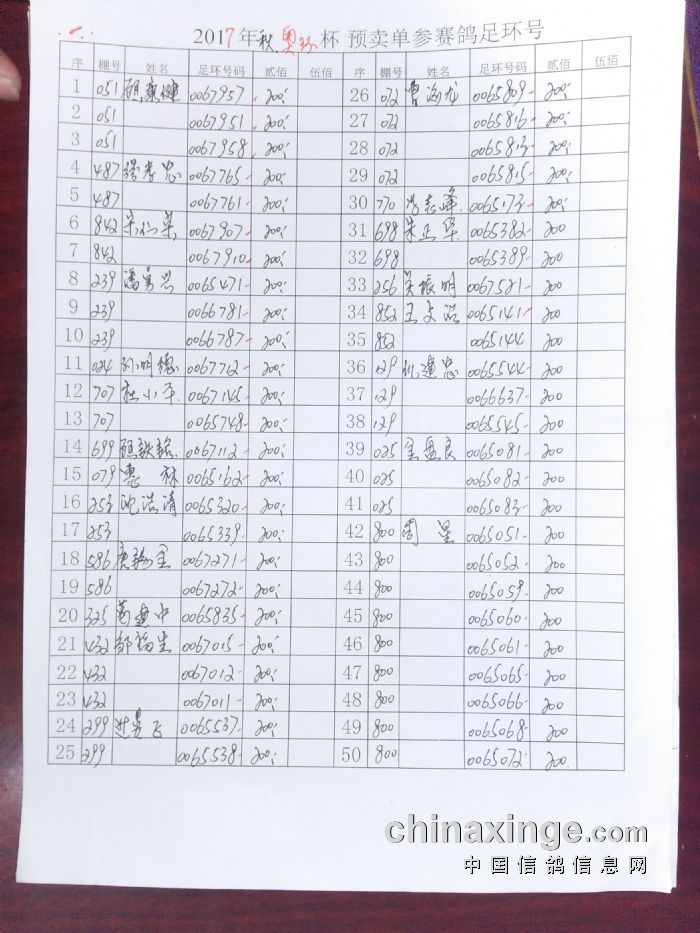 2017年秋奥环杯 预卖单参赛鸽足环号
序 棚号 姓名 足环号码 贰佰 伍佰 序 棚号 姓名 足环号码 贰佰 伍佰
1 051 0067957 200 26 072 曹海龙 0065809 200
2 051 0067951 200 27 072 0065816 200
3 051 0067958 200 28 072 0065813 200
4 487 0067765 200 29 072 0065815 200
5 487 0067761 200 30 770 0065173 200
6 842 0067907 200 31 698 朱正华 0065382 200
7 842 0067910 200 32 698 0065389 200
8 239 潘勇兴 0065471 200 33 256 吴振明 0067521 200
9 239 0066781 200 34 852 王文浩 0065141 200
10 239 0066787 200 35 852 0065144 200
11 024 孙明德 0067712 200 36 129 0065544 200
12 707 杜小平 0067145 200 37 129 0066637 200
13 707 0065748 200 38 129 0065545 200
14 699 0067112 200 39 025 金盘良 0065081 200
15 079 惠林 0065162 200 40 025 0065082 200
16 253 沈浩清 0065320 200 41 025 0065083 200
17 253 0065339 200 42 800 周星 0065051 200
18 586 0067271 200 43 800 0065052 200
19 586 0067272 200 44 800 0065059 200
20 325 葛建中 0065835 200 45 800 0065060 200
21 432 邹福生 0067015 200 46 800 0065061 200
22 432 0067012 200 47 800 0065065 200
23 432 0067011 200 48 800 0065066 200
24 299 0065537 200 49 800 0065068 200
25 299 0065538 200 50 800 0065072 200
chinaxinge.com
中国信鸽信息网